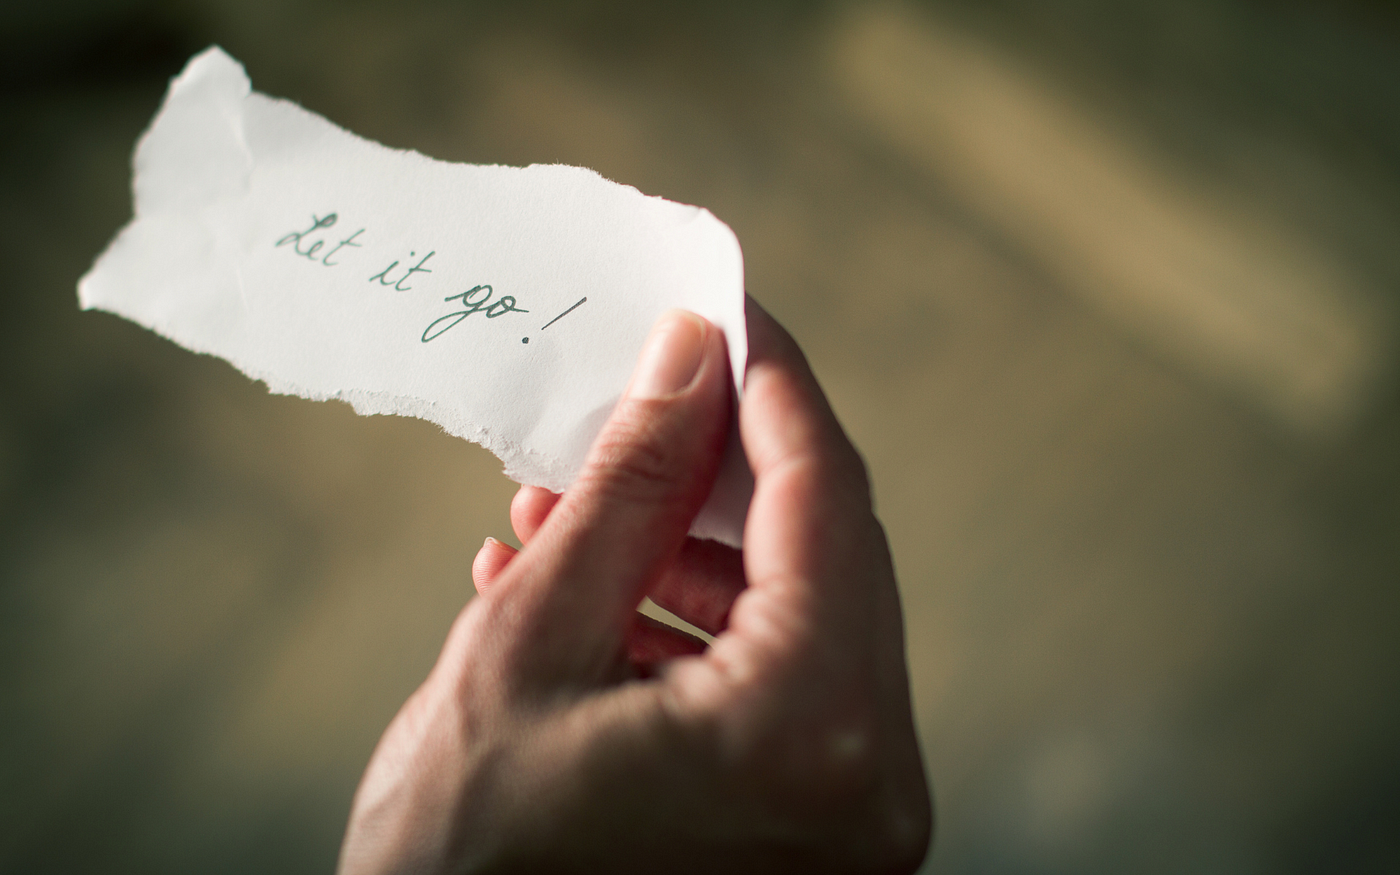 Let it go!